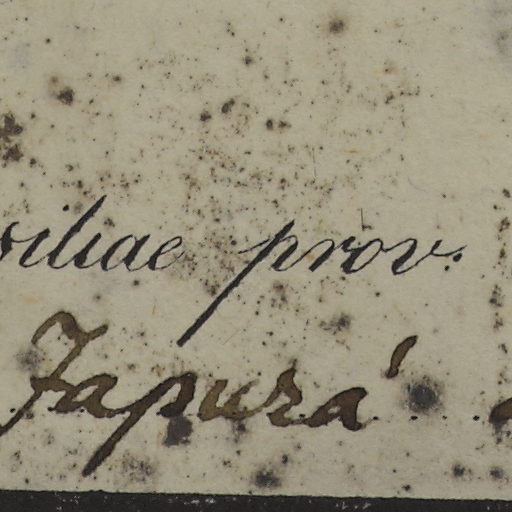 siliae prov.
Japurá